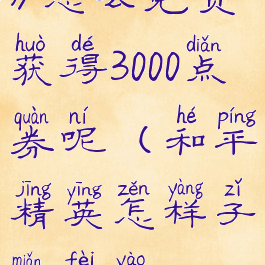 huò dé diǎn
获得3000点
quàn ní hé píng
券呢（和平
jīng yīng zěn yàng zǐ
精英怎样子
miǎn fèi yào